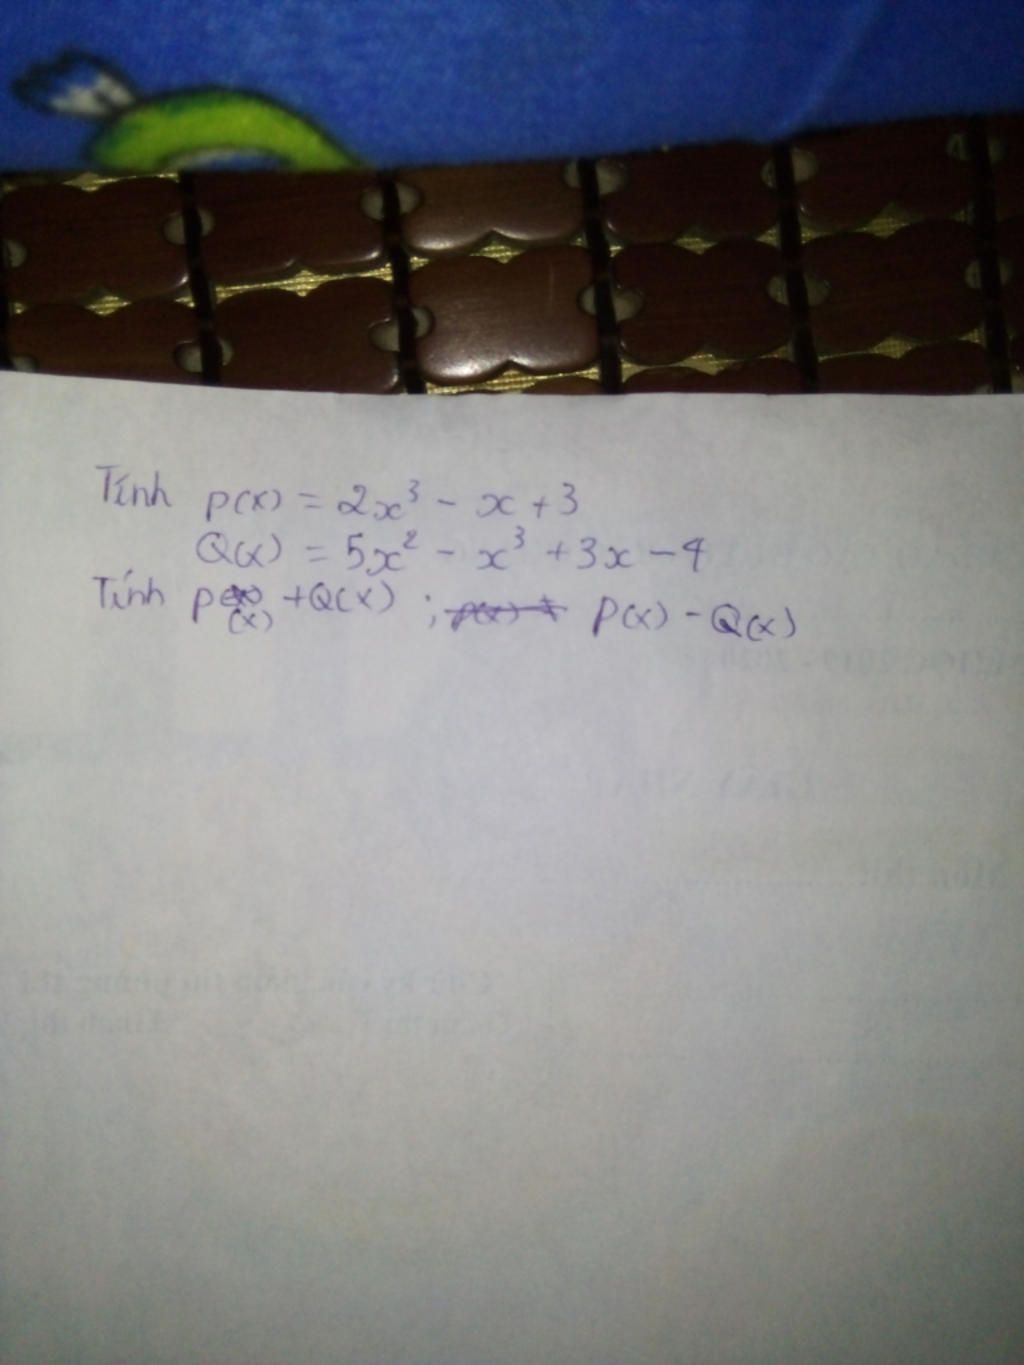 Tính P(x) = 2x³ - x + 3
Q(x) = 5x² - x³ + 3x - 4
Tính P(x) + Q(x) ; P(x) - Q(x)